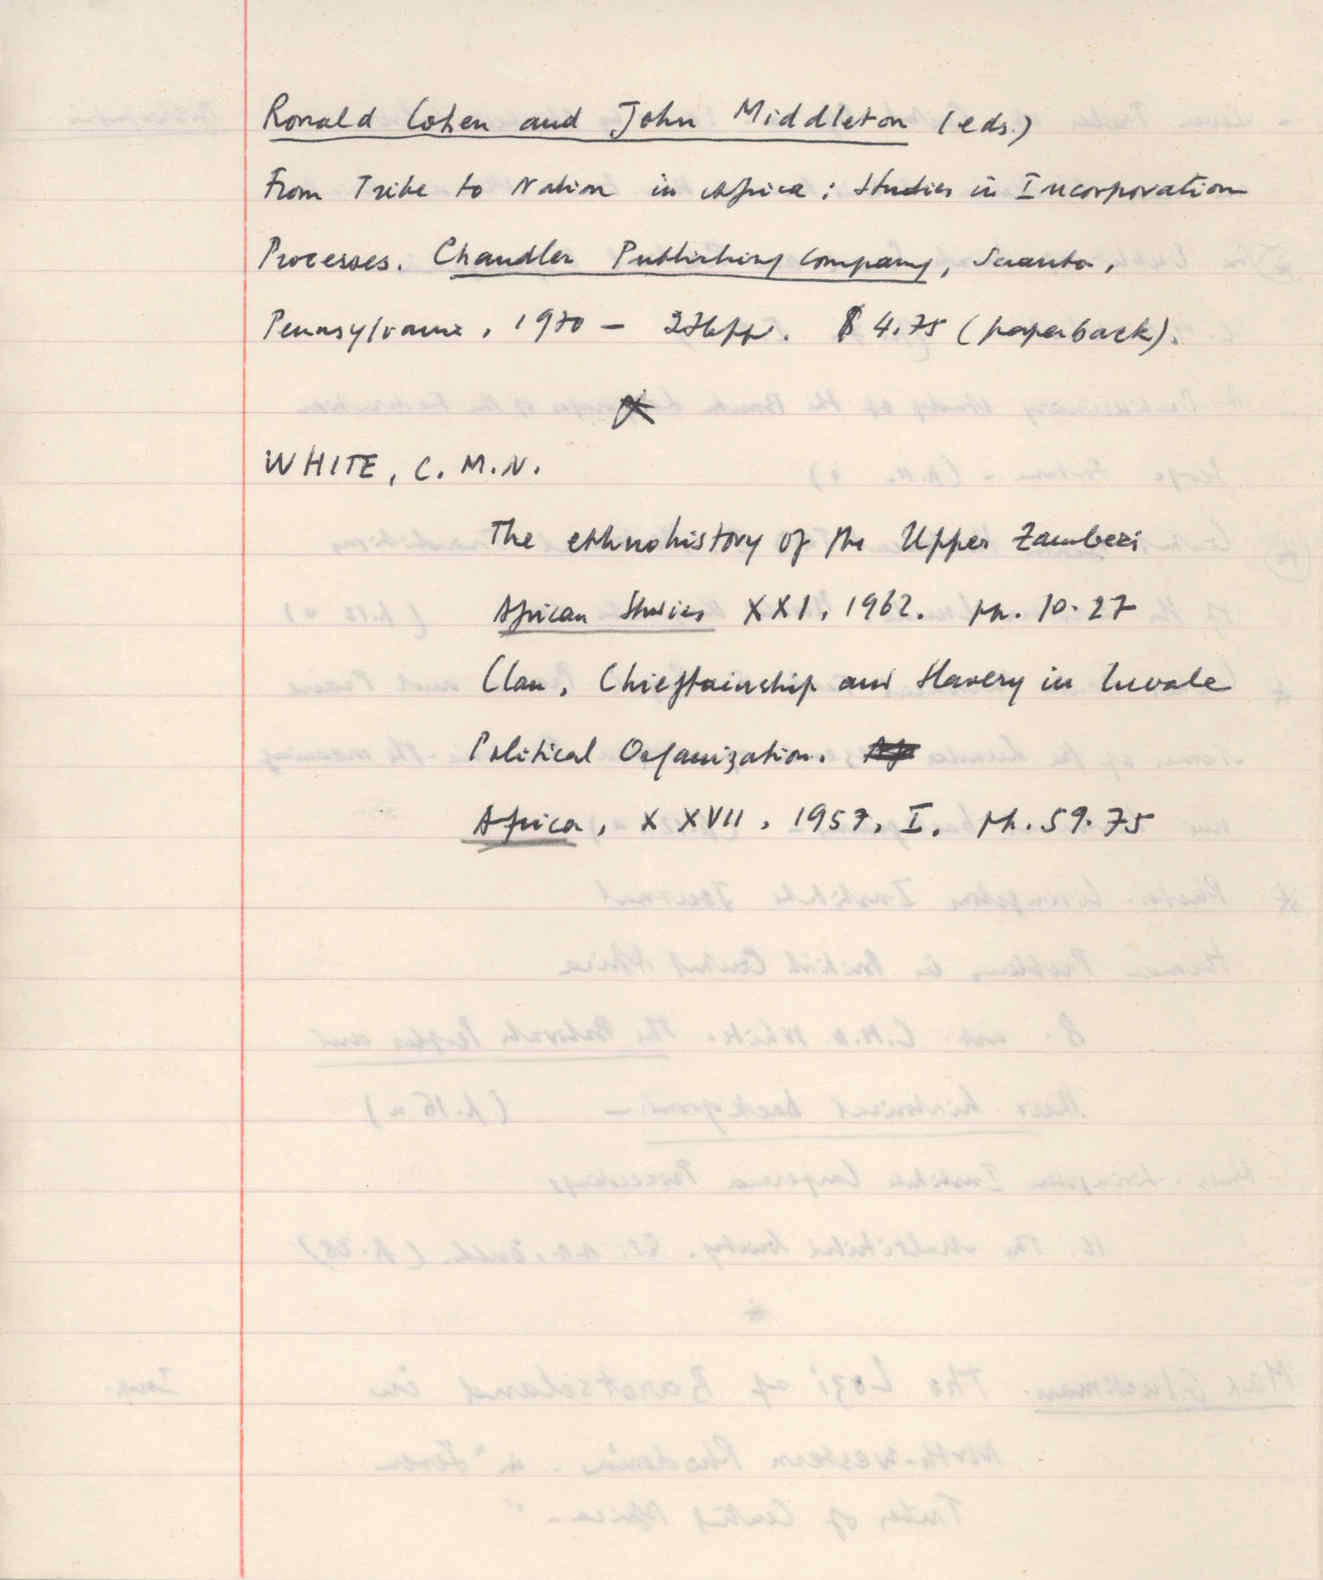 Ronald Cohen and John Middleton (eds.)
From Tribe to Nation in Africa: Studies in Incorporation
Processes. Chandler Publishing Company, Scranton,
Pennsylvania, 1970 - 276pp. $4.75 (paperback).
WHITE, C. M.N.
The ethnohistory of the Upper Zambezi
African Studies XXI, 1962. pp. 10-27
Clan, Chieftainship and Slavery in Luvale
Political Organization.
Africa, XXVII, 1957, I. pp. 59-75